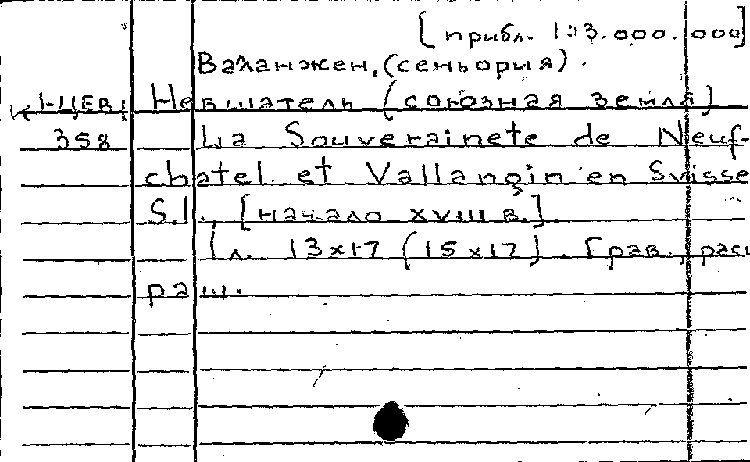 [прибл. 1:3.000.000]
Валанжен, (сеньория).
К 1-ЦЕВ. Невшатель (союзная земля)
358 La Souverainete de Neuf-
chatel et Vallangin en Svisse
S.l., [начало XVIII в.].
1 л. 13x17 (15x17). Грав., рас
раш.